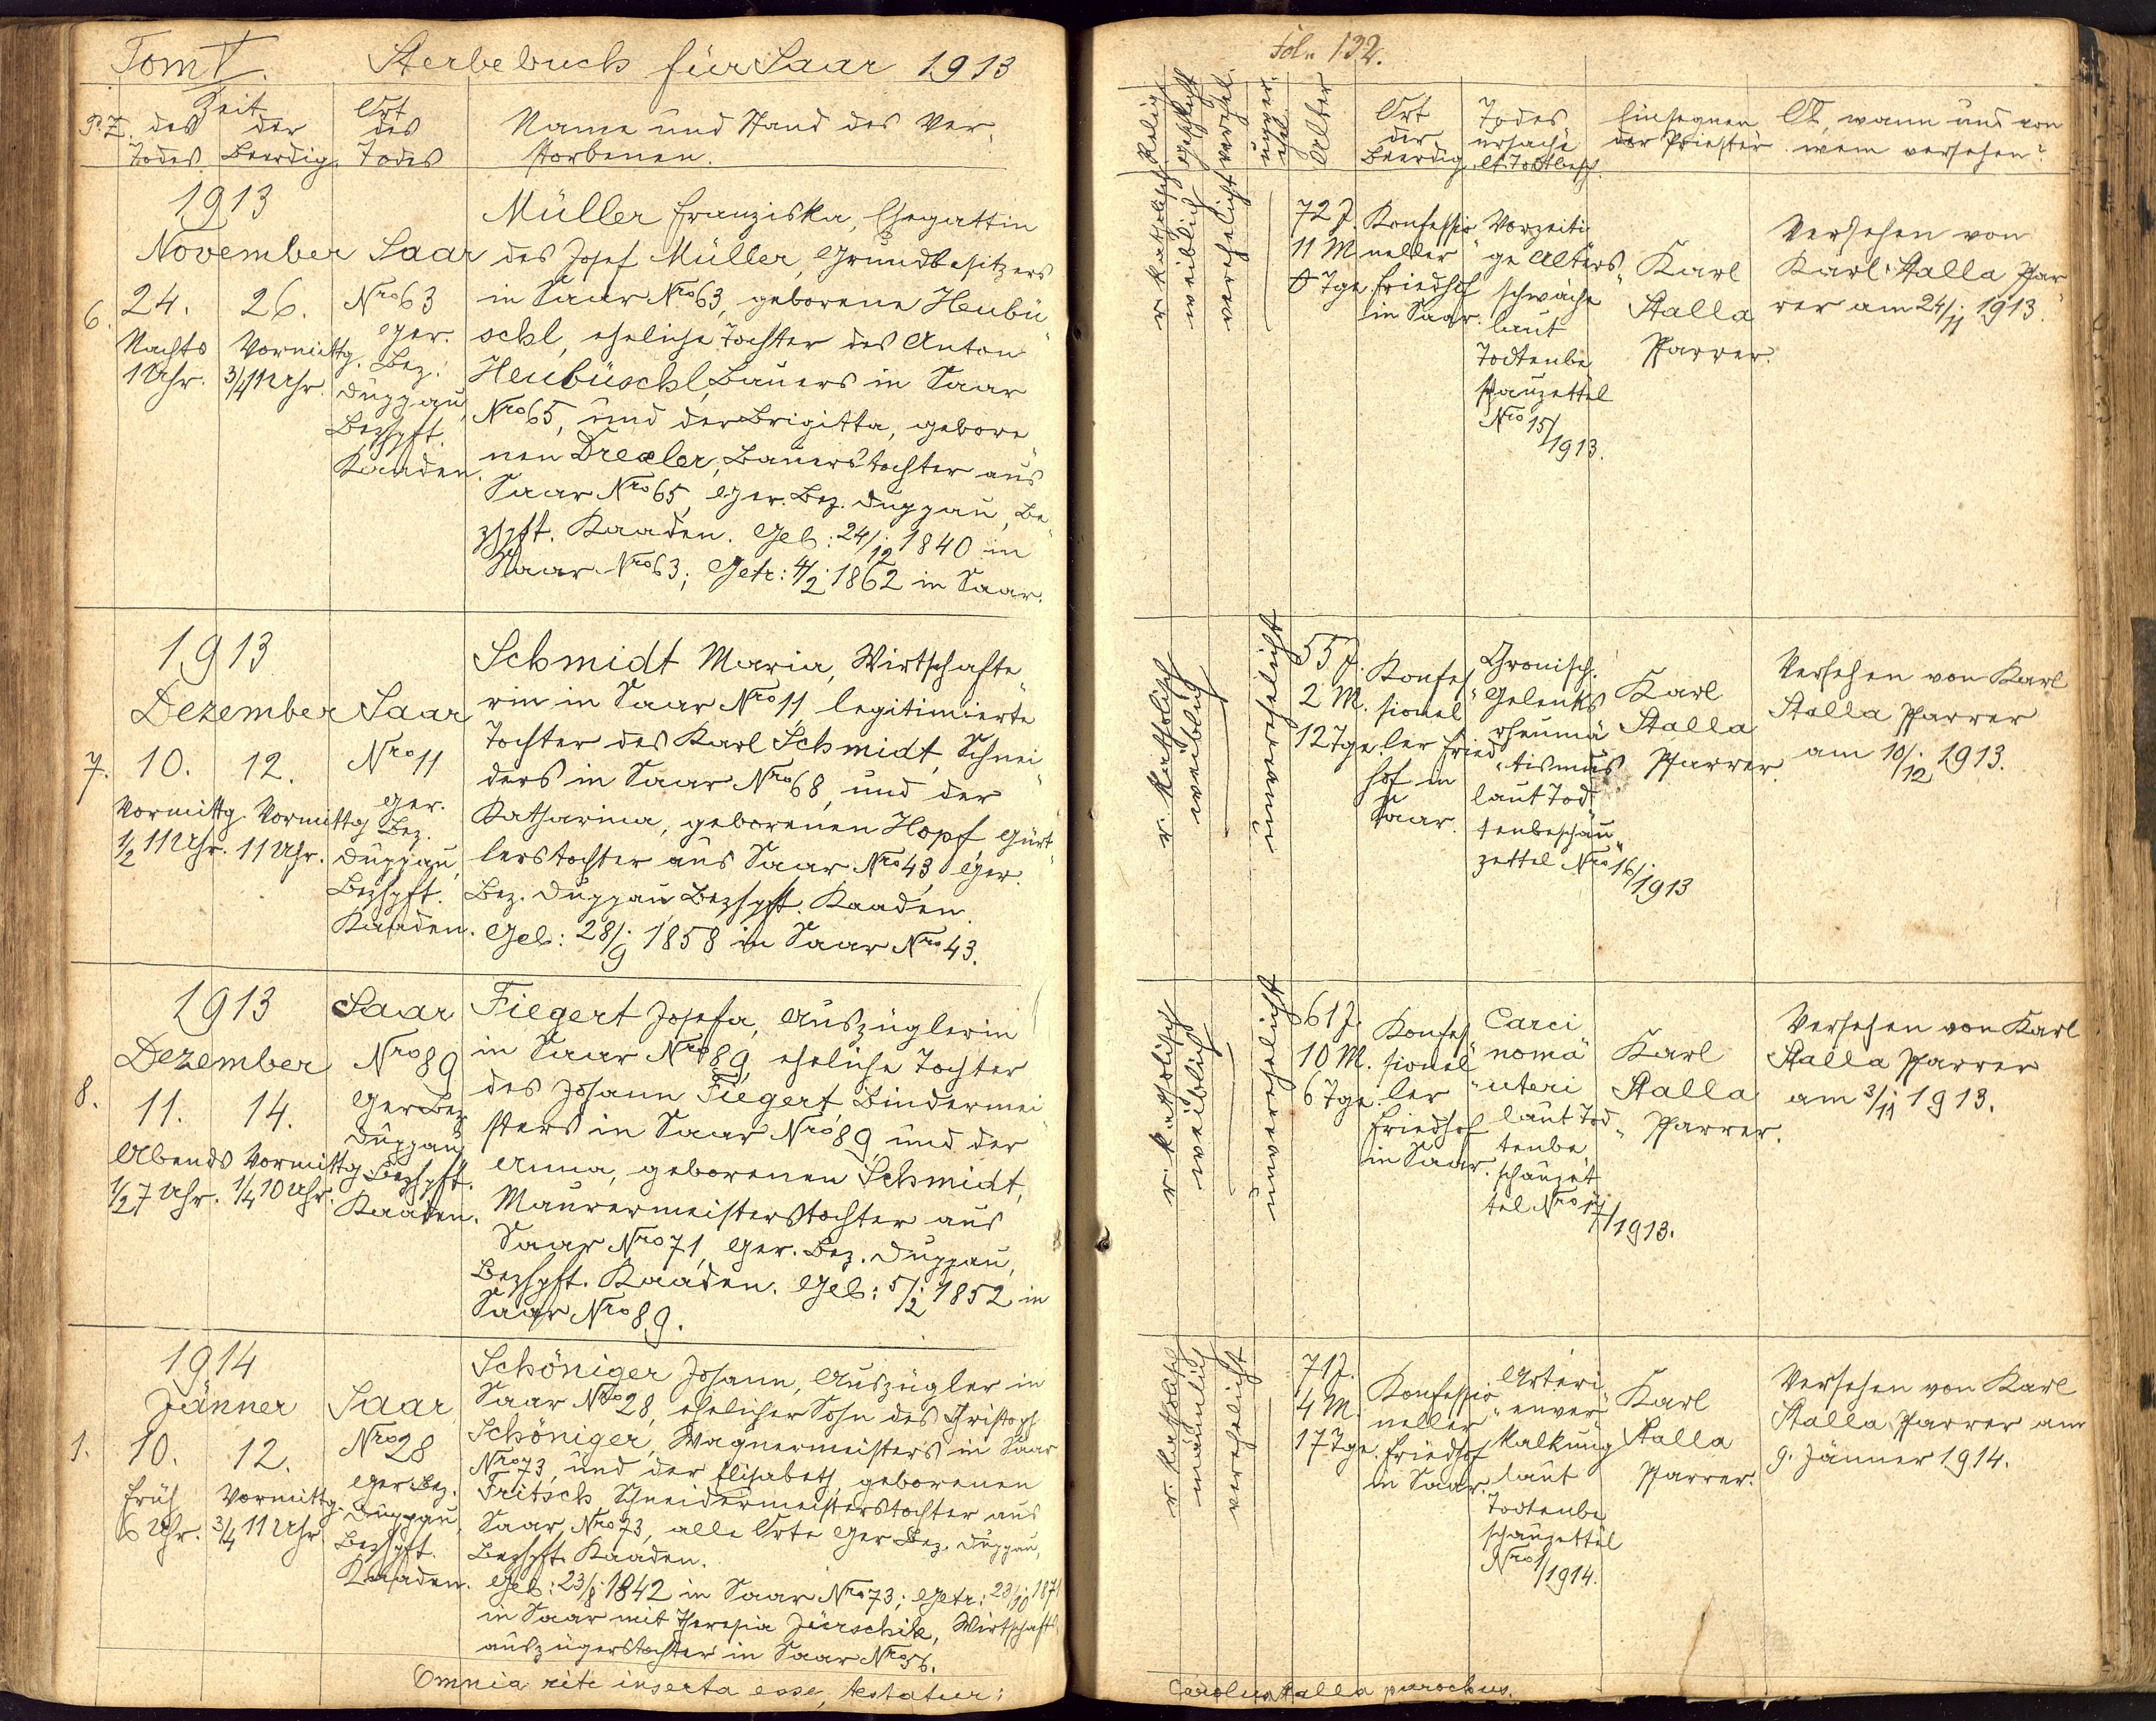 Tom V.
Sterbebuch für Saar 1913
P. Z.
Zeit
des Todes
der Beerdig.
Ort des Todes
Name und Stand des Ver-
storbenen.
1913
November
6.
24.
26.
Nachts
1 Uhr.
Vormittg.
3/4 11 Uhr.
Saar
Nro 63
Ger.
Bez.
Duppau,
Bezhpft.
Kaaden.
Müller Franziska, Ehegattin
des Josef Müller, Grundbesitzers
in Saar Nro 63, geborene Heubü-
schl, eheliche Tochter des Anton
Heubüschl, Bauers in Saar
Nro 65, und der Brigitta, gebore-
nen Drexler, Bauerstochter aus
Saar Nro 65, Ger. Bez. Duppau, Be-
zhpft. Kaaden. Geb: 24/12 1840 in
Saar Nro 63; Getr: 4/2 1862 in Saar.
1913
Dezember
7.
10.
12.
Vormittg.
1/2 11 Uhr.
Vormittg
11 Uhr.
Saar
Nro 11
Ger.
Bez.
Duppau,
Bezhpft.
Kaaden.
Schmidt Maria, Wirtschafte-
rin in Saar Nro 11 legitimierte
Tochter des Karl Schmidt, Schnei-
ders in Saar Nro 68, und der
Katharina, geborenen Hopf, Gürt-
lerstochter aus Saar Nro 43, Ger.
Bez. Duppau Bezhpft. Kaaden.
Geb: 28/9 1858 in Saar Nro 43.
1913
Dezember
8.
11.
14.
Abends
1/2 7 Uhr.
Vormittg
1/4 10 Uhr.
Saar
Nro 89
Ger Bez
Duppau
Bezhpft.
Kaaden.
Fiegert Josefa, Auszüglerin
in Saar Nro 89, eheliche Tochter
des Johann Fiegert, Bindermei-
sters in Saar Nro 89, und der
Anna, geborenen Schmidt,
Maurermeisterstochter aus
Saar Nro 71, Ger. Bez. Duppau,
Bezhpft. Kaaden. Geb: 5/2 1852 in
Saar Nro 89.
1914
Jänner
1.
10.
12.
Früh
6 Uhr.
Vormittg.
3/4 11 Uhr.
Saar
Nro 28
Ger. Bez.
Duppau,
Bezhpft.
Kaaden.
Schöniger Johann, Auszügler in
Saar Nro 28, ehelicher Sohn des Christoph
Schöniger, Wagnermeisters in Saar
Nro 73, und der Elisabeth, geborenen
Fritsch, Schneidermeisterstochter aus
Saar Nro 73, alle Orte Ger. Bez. Duppau,
Bezhpft. Kaaden.
Geb: 23/8 1842 in Saar Nro 73; Getr: 23/10 1871
in Saar mit Theresia Jürschik, Wirtschafts-
auszügerstochter in Saar Nro 56.
Omnia rite inserta esse, testatur:
Fol. 132.
Relig.
Geschlecht
verehel.
unver-
ehel.
Alter
Ort
der
Beerdig.
Todes
ursache
lt. Todtbesch.
Einsegnen
der Priester
Ob, wann und von
wem versehen?
r. katholisch
weiblich
verehelicht
72 J.
11 M.
0 Tge
Konfessio-
neller
Friedhof
in Saar.
Vorzeiti-
ge Alters-
schwäche
laut
Todtenbe
schauzettel
Nro 15/1913.
Karl
Stalla
Pfarrer.
Versehen von
Karl Stalla Pfar-
rer am 24/11 1913.
r. katholisch
weiblich
unverehelicht
55 J.
2 M.
12 Tge
Konfes-
sionel-
ler Fried-
hof in
Saar.
Chronisch.
Gelenks
rheuma-
tismus
laut Tod-
tenbeschau-
zettel Nro 16/1913
Karl
Stalla
Pfarrer.
Versehen von Karl
Stalla Pfarrer
am 10/12 1913.
r. katholisch
weiblich
unverehelicht
61 J.
10 M.
6 Tge
Konfes-
sionel-
ler
Friedhof
in Saar.
Carci
noma
uteri
laut Tod-
tenbe-
schauzet
tel Nro 17/1913.
Karl
Stalla
Pfarrer.
Versehen von Karl
Stalla Pfarrer
am 3/11 1913.
r. katholisch
männlich
verehelicht
71 J.
4 M.
17 Tge
Konfessio-
neller
Friedhof
in Saar.
Arteri-
enver-
kalkung
laut
Todtenbe
schauzettel
Nro 1/1914.
Karl
Stalla
Pfarrer.
Versehen von Karl
Stalla Pfarrer am
9. Jänner 1914.
Carolus Stalla parochus.